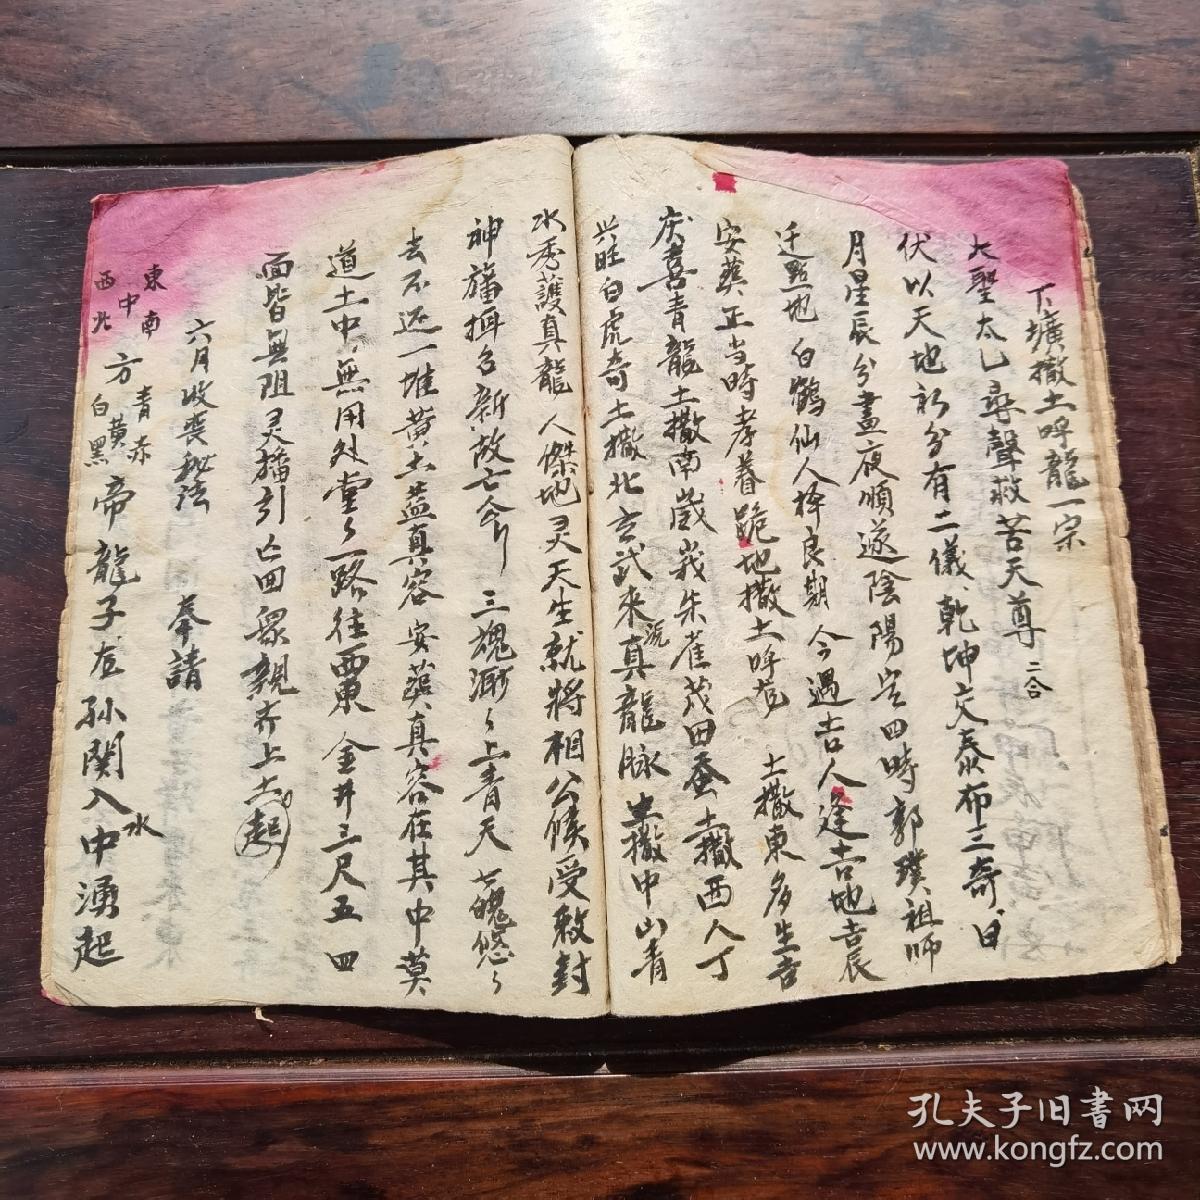 下壙撒土呼龍一宗
大聖太乙尋聲救苦天尊 二合
伏以天地初分有二儀、乾坤交泰布三奇、日
月星辰分晝夜順遂陰陽定四時郭璞祖師
迁點地白鶴仙人择良期 今遇吉人逢吉地吉辰
安葬正当時孝眷跪地撒土呼 土撒東多生吉
庆喜青龍土撒南歲朱雀茂田蚕土撒西人丁
兴旺白虎奇土撒北玄武來真龍脉 土撒中山青
水秀護真龍人傑地灵天生就將相公候受敕封
神旛摂召新故亡令行 三魂渺々上青天 七魄悠々
去不返一堆黄土蓋真容安葬真容在其中莫
道土中無用处堂々一路往西東金井三尺五四
面皆無阻灵旛引亡回眾親齐上土 起
六月收丧秘法 奉請
東南中西北方青赤黄白黑帝龍子 孙関入水中湧起
孔夫子旧书网
www.kongfz.com